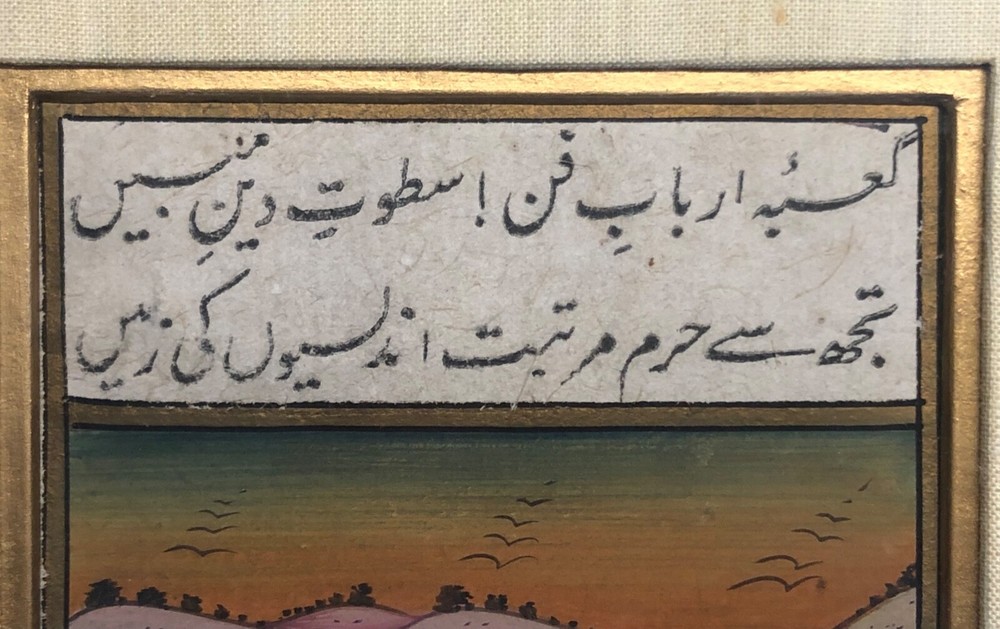 کعبۂ ارباب فن ! سطوتِ دینِ مبیں
تجھ سے حرم مرتبت اندلسیوں کی زمیں